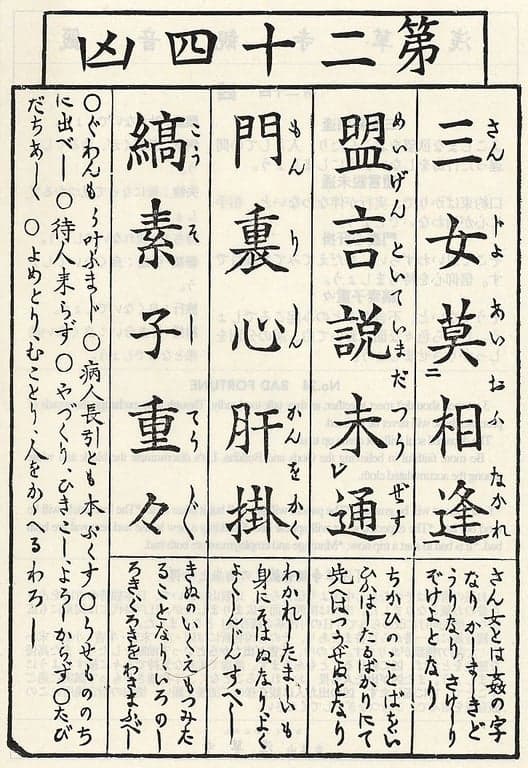 第二十四凶
三女莫ニ相逢
さんじよあいおふなかれ
盟言說未レ通
めげんといていまだつうぜず
門裏心肝掛
もんりしんかんをかく
縞素子重々
こうそしてう〱
さん女とは姦の字
なりかしまきど
うりなりさとり
ぞけてとなり
ちかひことばをい
ひかはしたるばかりにて
先へはつうぜぬとなり
わかれしたまいも
身にそはぬなりよく
よくしん〱すべし
きぬのいくえもつみた
ることなりいろのし
ろきくろきをわきまふべし
〇ぐわんもう叶ふまじ 〇病人長引とも本ぶくす 〇うせもののち
に出べし 〇待人来らず 〇やづくりひきこしよろしからず 〇たび
だちあしく 〇よめとりむことり人をかゝゆるわろし